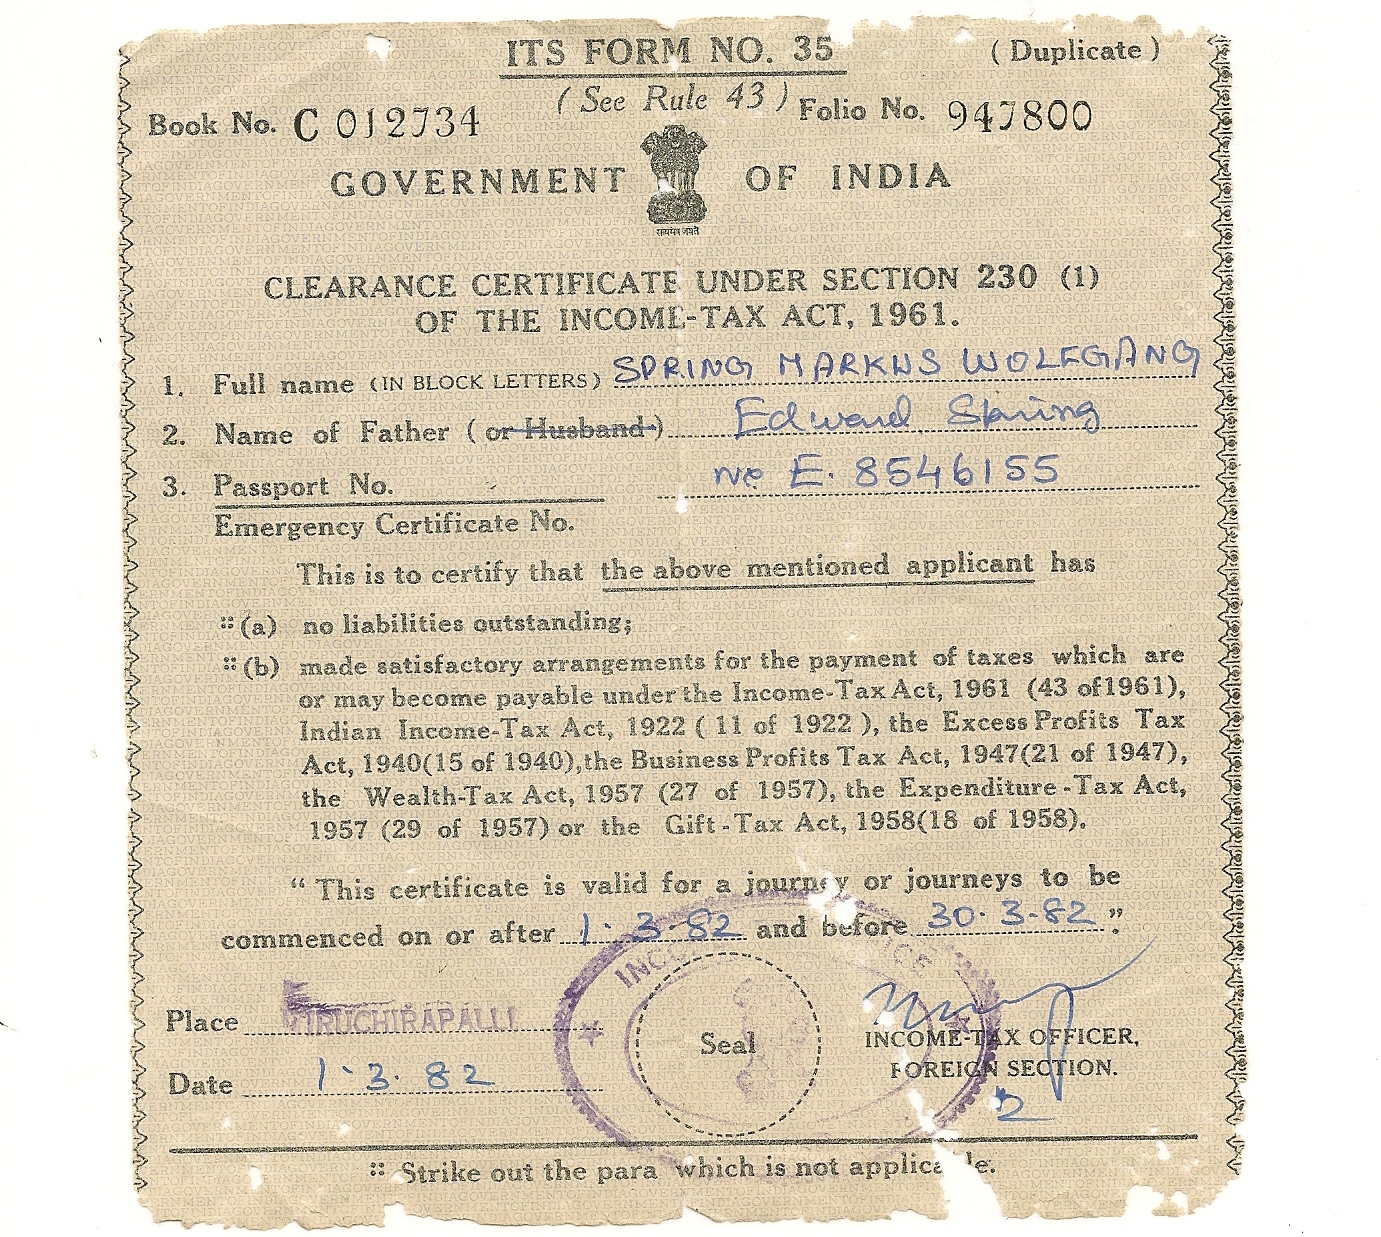 ITS FORM NO. 35
( Duplicate )
( See Rule 43 )
Book No. C 012734
Folio No. 947800
GOVERNMENT OF INDIA
सत्यमेव जयते
CLEARANCE CERTIFICATE UNDER SECTION 230 (1)
OF THE INCOME-TAX ACT, 1961.
1. Full name (IN BLOCK LETTERS) SPRING MARKUS WOLFGANG
2. Name of Father ( or Husband ) Edward Spring
3. Passport No. No E. 8546155
Emergency Certificate No.
This is to certify that the above mentioned applicant has
(a) no liabilities outstanding;
(b) made satisfactory arrangements for the payment of taxes which are
or may become payable under the Income-Tax Act, 1961 (43 of 1961),
Indian Income-Tax Act, 1922 ( 11 of 1922 ), the Excess Profits Tax
Act, 1940(15 of 1940),the Business Profits Tax Act, 1947(21 of 1947),
the Wealth-Tax Act, 1957 (27 of 1957), the Expenditure-Tax Act,
1957 (29 of 1957) or the Gift-Tax Act, 1958(18 of 1958).
“ This certificate is valid for a journey or journeys to be
commenced on or after 1.3.82 and before 30.3.82 ”.
Place TIRUCHIRAPALLI
Seal
INCOME-TAX OFFICER,
FOREIGN SECTION.
Date 1.3.82
Strike out the para which is not applicable.